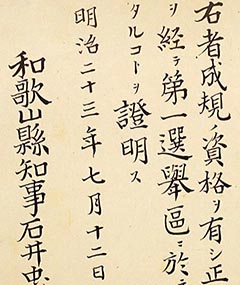 右者成規ノ資格ヲ有シ正
ヲ経テ第一選舉區ニ於テ
タルコトヲ證明ス
明治二十三年七月十二日
和歌山縣知事石井忠